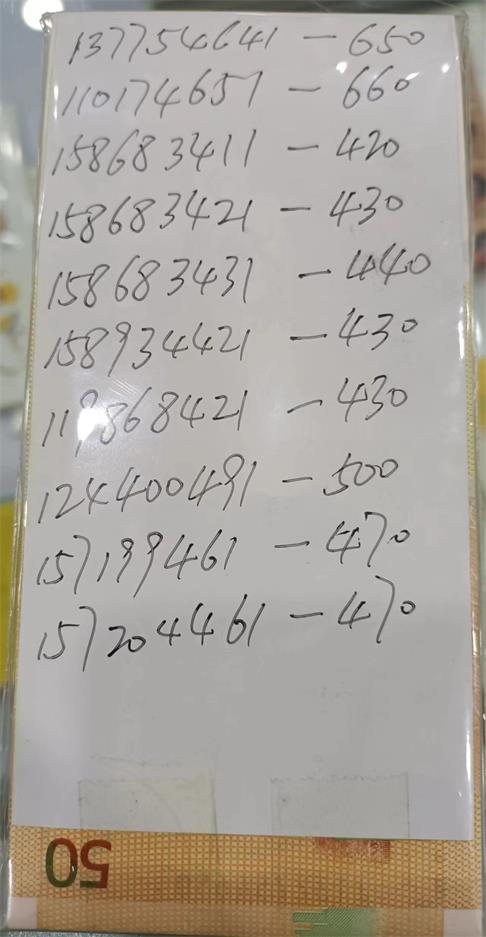 137754641 - 650
110174651 - 660
158683411 - 420
158683421 - 430
158683431 - 440
158934421 - 430
119868421 - 430
124400491 - 500
157199461 - 470
157204461 - 470
50